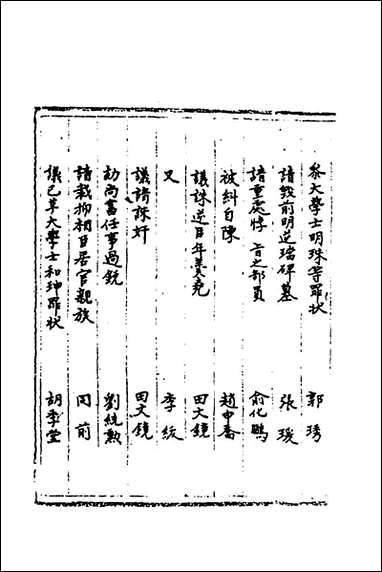 叅大學士明珠等罪狀 郭琇
請毀前明逆璫碑墓 張瑗
請重處悖旨之部員 俞化鵬
被糾自陳 趙申喬
議誅逆臣年羹堯 田文鏡
又 李紱
議請誅奸 田文鏡
劾尚書任事過銳 劉統勲
請裁抑相臣居官親族 同前
議已革大學士和珅罪狀 胡季堂